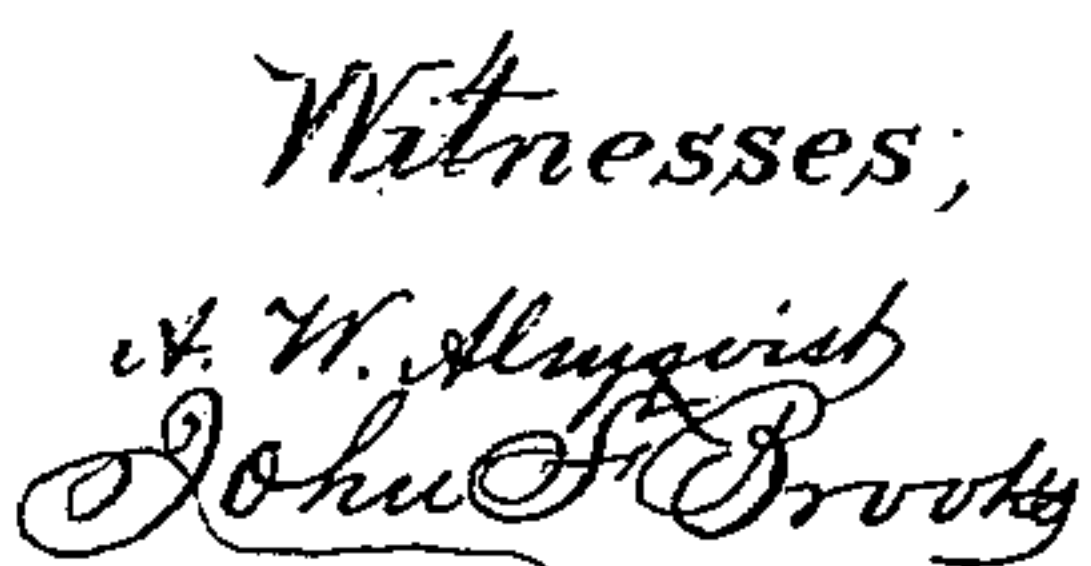 Witnesses;
A. W. Almqvist
John F. Brooks